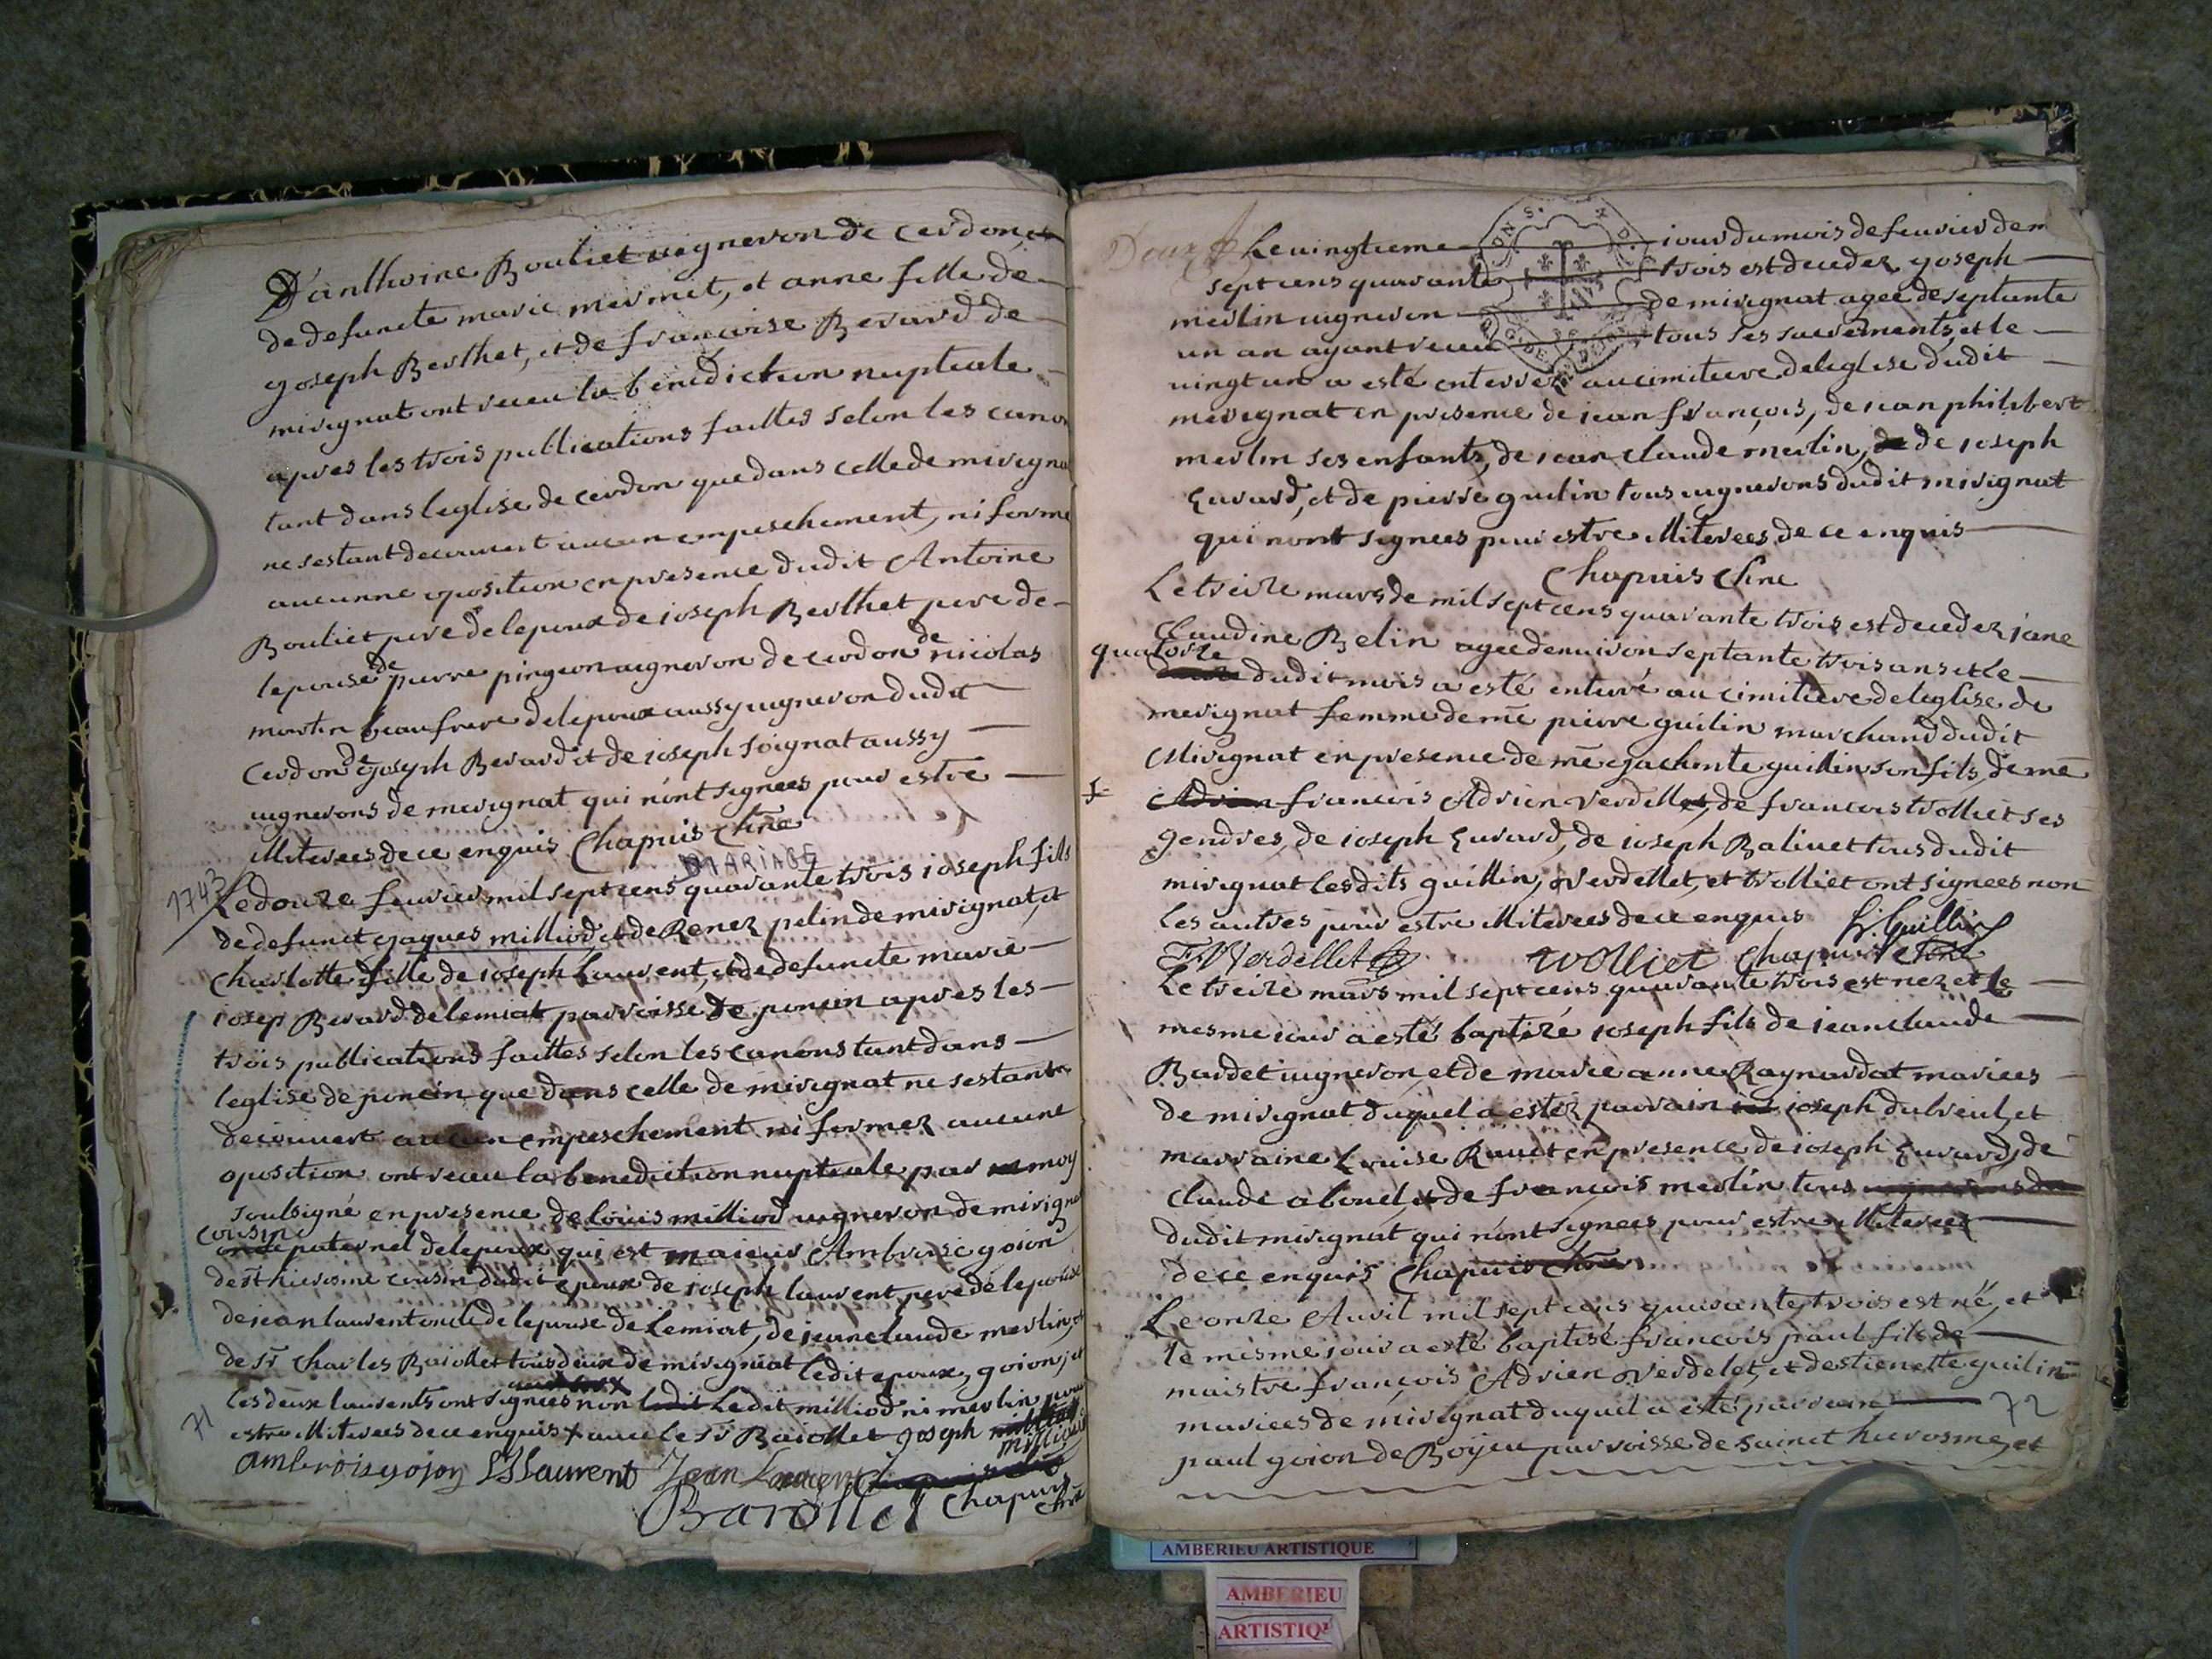 D'anthoine Bouliet uigneron de Cerdon, et
de defuncte marie mermet, et anne fille de
joseph Berthet, et de francoise Berard de
mirignat ont receu la benediction nuptiale
apres les trois publications faittes selon les canon
tant dans leglise de cerdon que dans celle de mirigna
ne sestant decouuert aucun empeschement, ni forme
aucunne oposition en presence dudit Antoine
Bouliet pere de lepoux de ioseph Berthet pere de
lepouse de pierre pingeon uigneron de cerdon de nicolas
martin beaufrere de lepoux aussy uigneron dudit
Cerdon de joseph Berard et de ioseph soignat aussy
uignerons de merignat qui n'ont signees pour estre
illiterees de ce enquis Chapuis Cure
MARIAGE
1743
Le douze feurier mil sept cens quarante trois ioseph fils
de defunct jaques milliod, et de Renez pelin de mirignat, et
Charlotte fille de ioseph Laurent, et de defuncte marie
iosep Berard de lemiat parroisse de poncin apres les
trois publications faittes selon les canons tant dans
leglise de poncin que dans celle de mirignat ne sestant
decouuert aucun empeschement ni formez aucune
oposition ont receu la benediction nuptiale par moy
soubsigné en presence de louis milliod uigneron de mirigna
cousin
oncle paternel de lepoux qui est majeur Ambroise goion
de st hierosme cousin dudit epoux de ioseph laurent pere de lepouse
de jean laurent oncle de lepouse de Lemiat, de jean claude merlin, et
de sr Charles Baiollet tous deux de mirigniat ledit epoux, goion, et
les deux laurents ont signees non ledit Ledit milliod ni merlin pour
estre illiterees de ce enquis + auec le sr Baiollet joseph milliod
71
ambroise gojon J Laurent Jean Laurent
Baiollet Chapuis Cure
Douze Le uingtieme iour du mois de feurier de m
sept cens quarante trois est decedez joseph
merlin uigneron de mirignat agee de septante
un an ayant receu tous ses sacrements, et le
uingt un a esté enterrez au cimitiere de leglise dudit
merignat en presence de iean françois, de iean philibert
merlin ses enfants, de iean claude merlin, de de ioseph
Eurard, et de pierre guilin tous uignerons dudit mirignat
qui n'ont signees pour estre illiterees de ce enquis
Chapuis Cure
Le treize mars de mil sept cens quarante trois est decedez jane
Claudine Belin agee denuiron septante trois ans et le
quatorze
dudit mois a esté enterré au cimitiere de leglise de
merignat femme de me pierre guilin marchand dudit
Mirignat en presence de me jachinte guillin son fils, de me
Adrien francois Adrien Verdellet, de francois trolliet ses
gendres, de ioseph Eurard, de ioseph Baliuet tous dudit
mirignat lesdits guillin, Verdellet, et trolliet ont signees non
les autres pour estre illiterees de ce enquis h. Guillin
F. Verdellet trolliet Chapuis Cure
Le treize mars mil sept cens quarante trois est nez et le
mesme iour a esté baptizé ioseph fils de jean claude
Bardet uigneron, et de marie anne Raynardat mariees
de mirignat duquel a estéz parrain ioseph dubreul, et
marraine Louise Rauet en presence de ioseph Eurard, de
claude abouel et de françois merlin tous uignerons du
dudit mirignat qui n'ont signees pour estre illiterees
de ce enquis Chapuis Cure
Le onze Auril mil sept cens quarante trois est né, et
le mesme iour a esté baptisé francois paul fils de
maistre françois Adrien Verdelet, et destienette guilin
mariees de mirignat duquel a esté parrain
72
paul goion de Boyeu parroisse de sainct hierosme, et
AMBERIEU ARTISTIQUE
AMBERIEU
ARTISTIQ